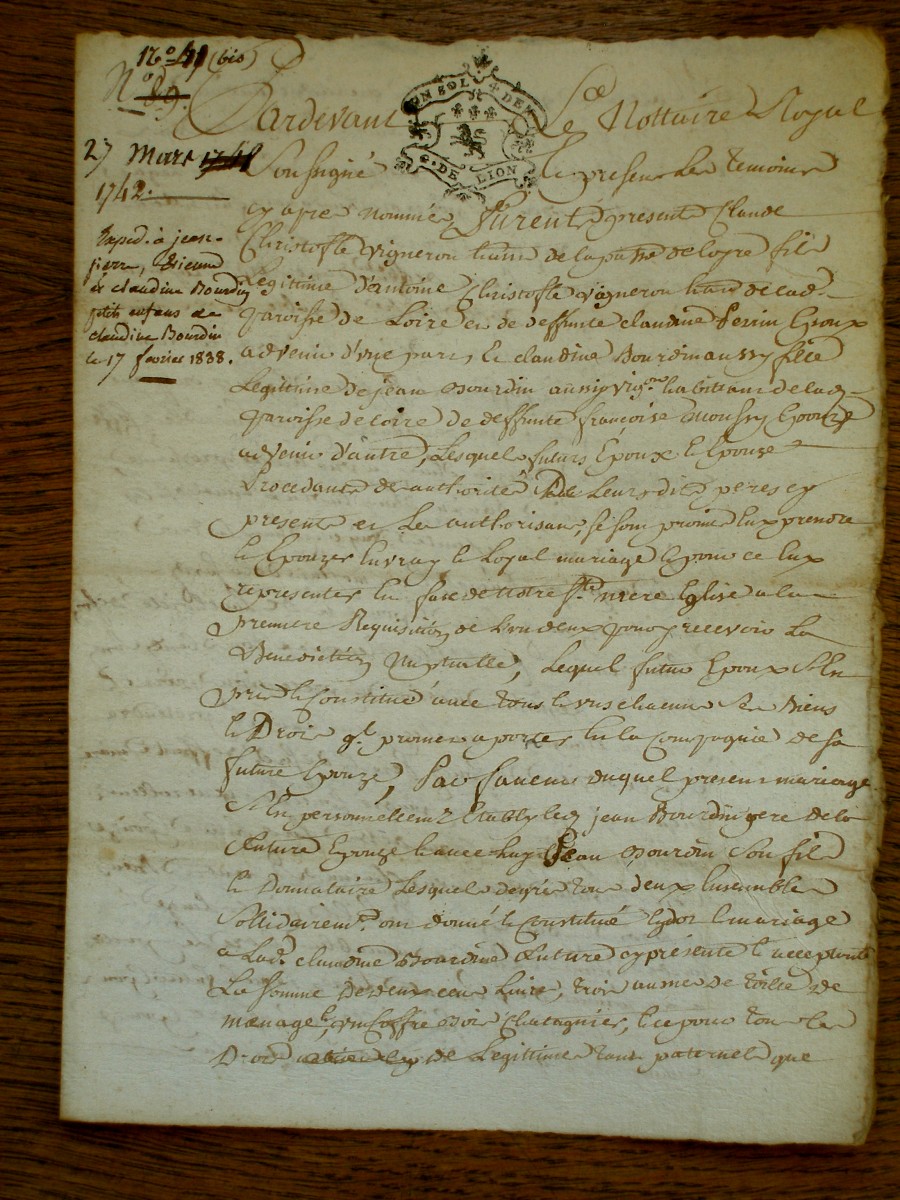 12° 41 (bis)
N° 89.
27 Mars 1741
1742.
Exped. à jean-
pierre, etienne
& claudine Bourdin
petits enfans de
claudine Bourdin
le 17 février 1838.
UN SOL DE
G. DE LION
Pardevant Le Nottaire Royal
Soussigné Et presens les temoins
cy apre nommés furent presents Claude
Christofle vigneron de la parsse de loyre fils
Légittime d'antoine Christofle vigneron de lad.
paroisse de Loire et de deffunte claudine Perrin Epoux
advenir d'une part, Et claudine Bourdin aussy fille
Legittime de jean Bourdin aussy vigron habittant de lad.
paroisse de Loire & de deffunte françoise Moussy Epouze
advenir d'autre, Lesquels futurs Epoux & Epouze
procedants de authorité de Leursdits peres cy
presents et Les authorisans, se sont promis Eux prendre
& Epouzer En vray & Loyal mariage & pour ce Eux
representer En face de Notre Ste mere Eglise a la
premiere Requisition de L'un deux pour y recevoir La
Benediction Nuptialle, Lequel futur Epoux s'est
constitué avec tous & uns chacuns ses Biens
& Droits ql promet apporter En la Compagnie de sa
future Epouze, En faveur duquel present mariage
s'est personnellemt Etably led. jean Bourdin pere de la
future Epouze & avec luy Jean Bourdin son fils
& Donnataire Lesquels de gré tous deux Ensembles
Sollidairemt ont donné & Constitué En dot & mariage
a Lad. claudine Bourdin future cy présente & acceptante
La somme De deux cent Livres, trois aunes de toille de
menage & un Coffre Bois Chatagnier, & ce pour tous les
Droits de Legittime tant paternels que